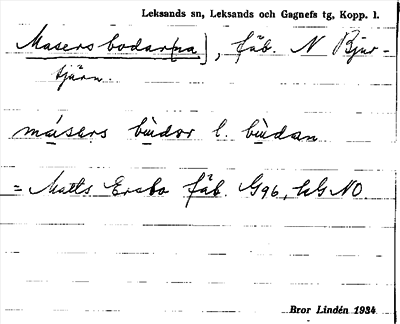 Leksands sn, Leksands och Gagnefs tg, Kopp. l.
Masersbodarna], fäb. N Bjur-
tjärn.
másers bùdor l. bùdan
= Matls Ersbo fäb. G96, hG NO
Bror Lindén 1934